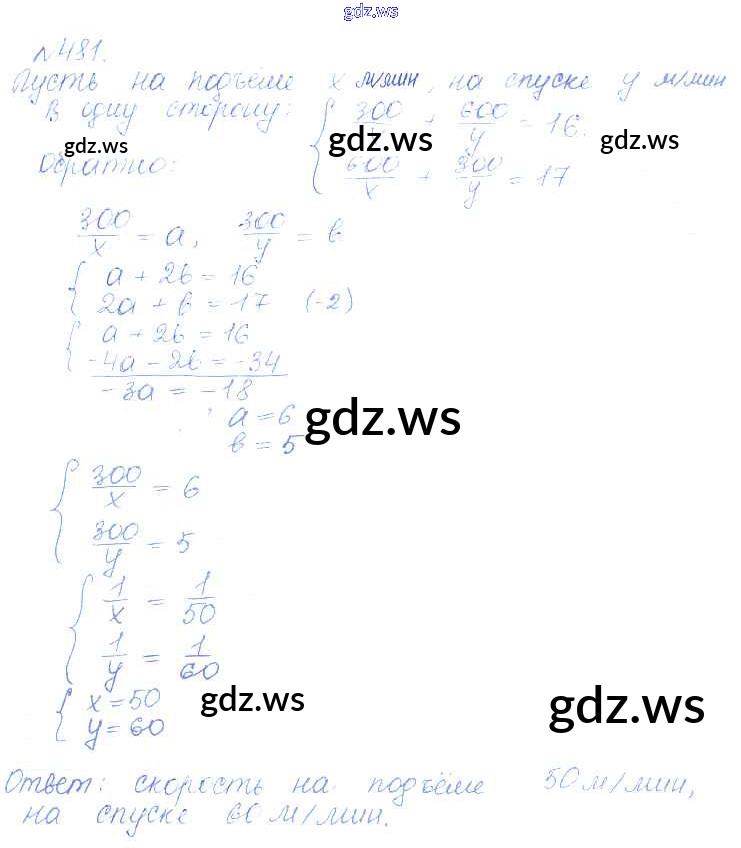 gdz.ws
№481.
Пусть на подъёме x м/мин, на спуске y м/мин
В одну сторону: { 300/x + 600/y = 16.
gdz.ws gdz.ws gdz.ws
Обратно: { 600/x + 300/y = 17
300/x = a, 300/y = b
{ a + 2b = 16
{ 2a + b = 17 (-2)
{ a + 2b = 16
{ -4a - 2b = -34
-3a = -18
a = 6
gdz.ws
b = 5
{ 300/x = 6
{ 300/y = 5
{ 1/x = 1/50
{ 1/y = 1/60
{ x = 50
gdz.ws gdz.ws
{ y = 60
Ответ: скорость на подъёме 50 м/мин,
на спуске 60 м/мин.